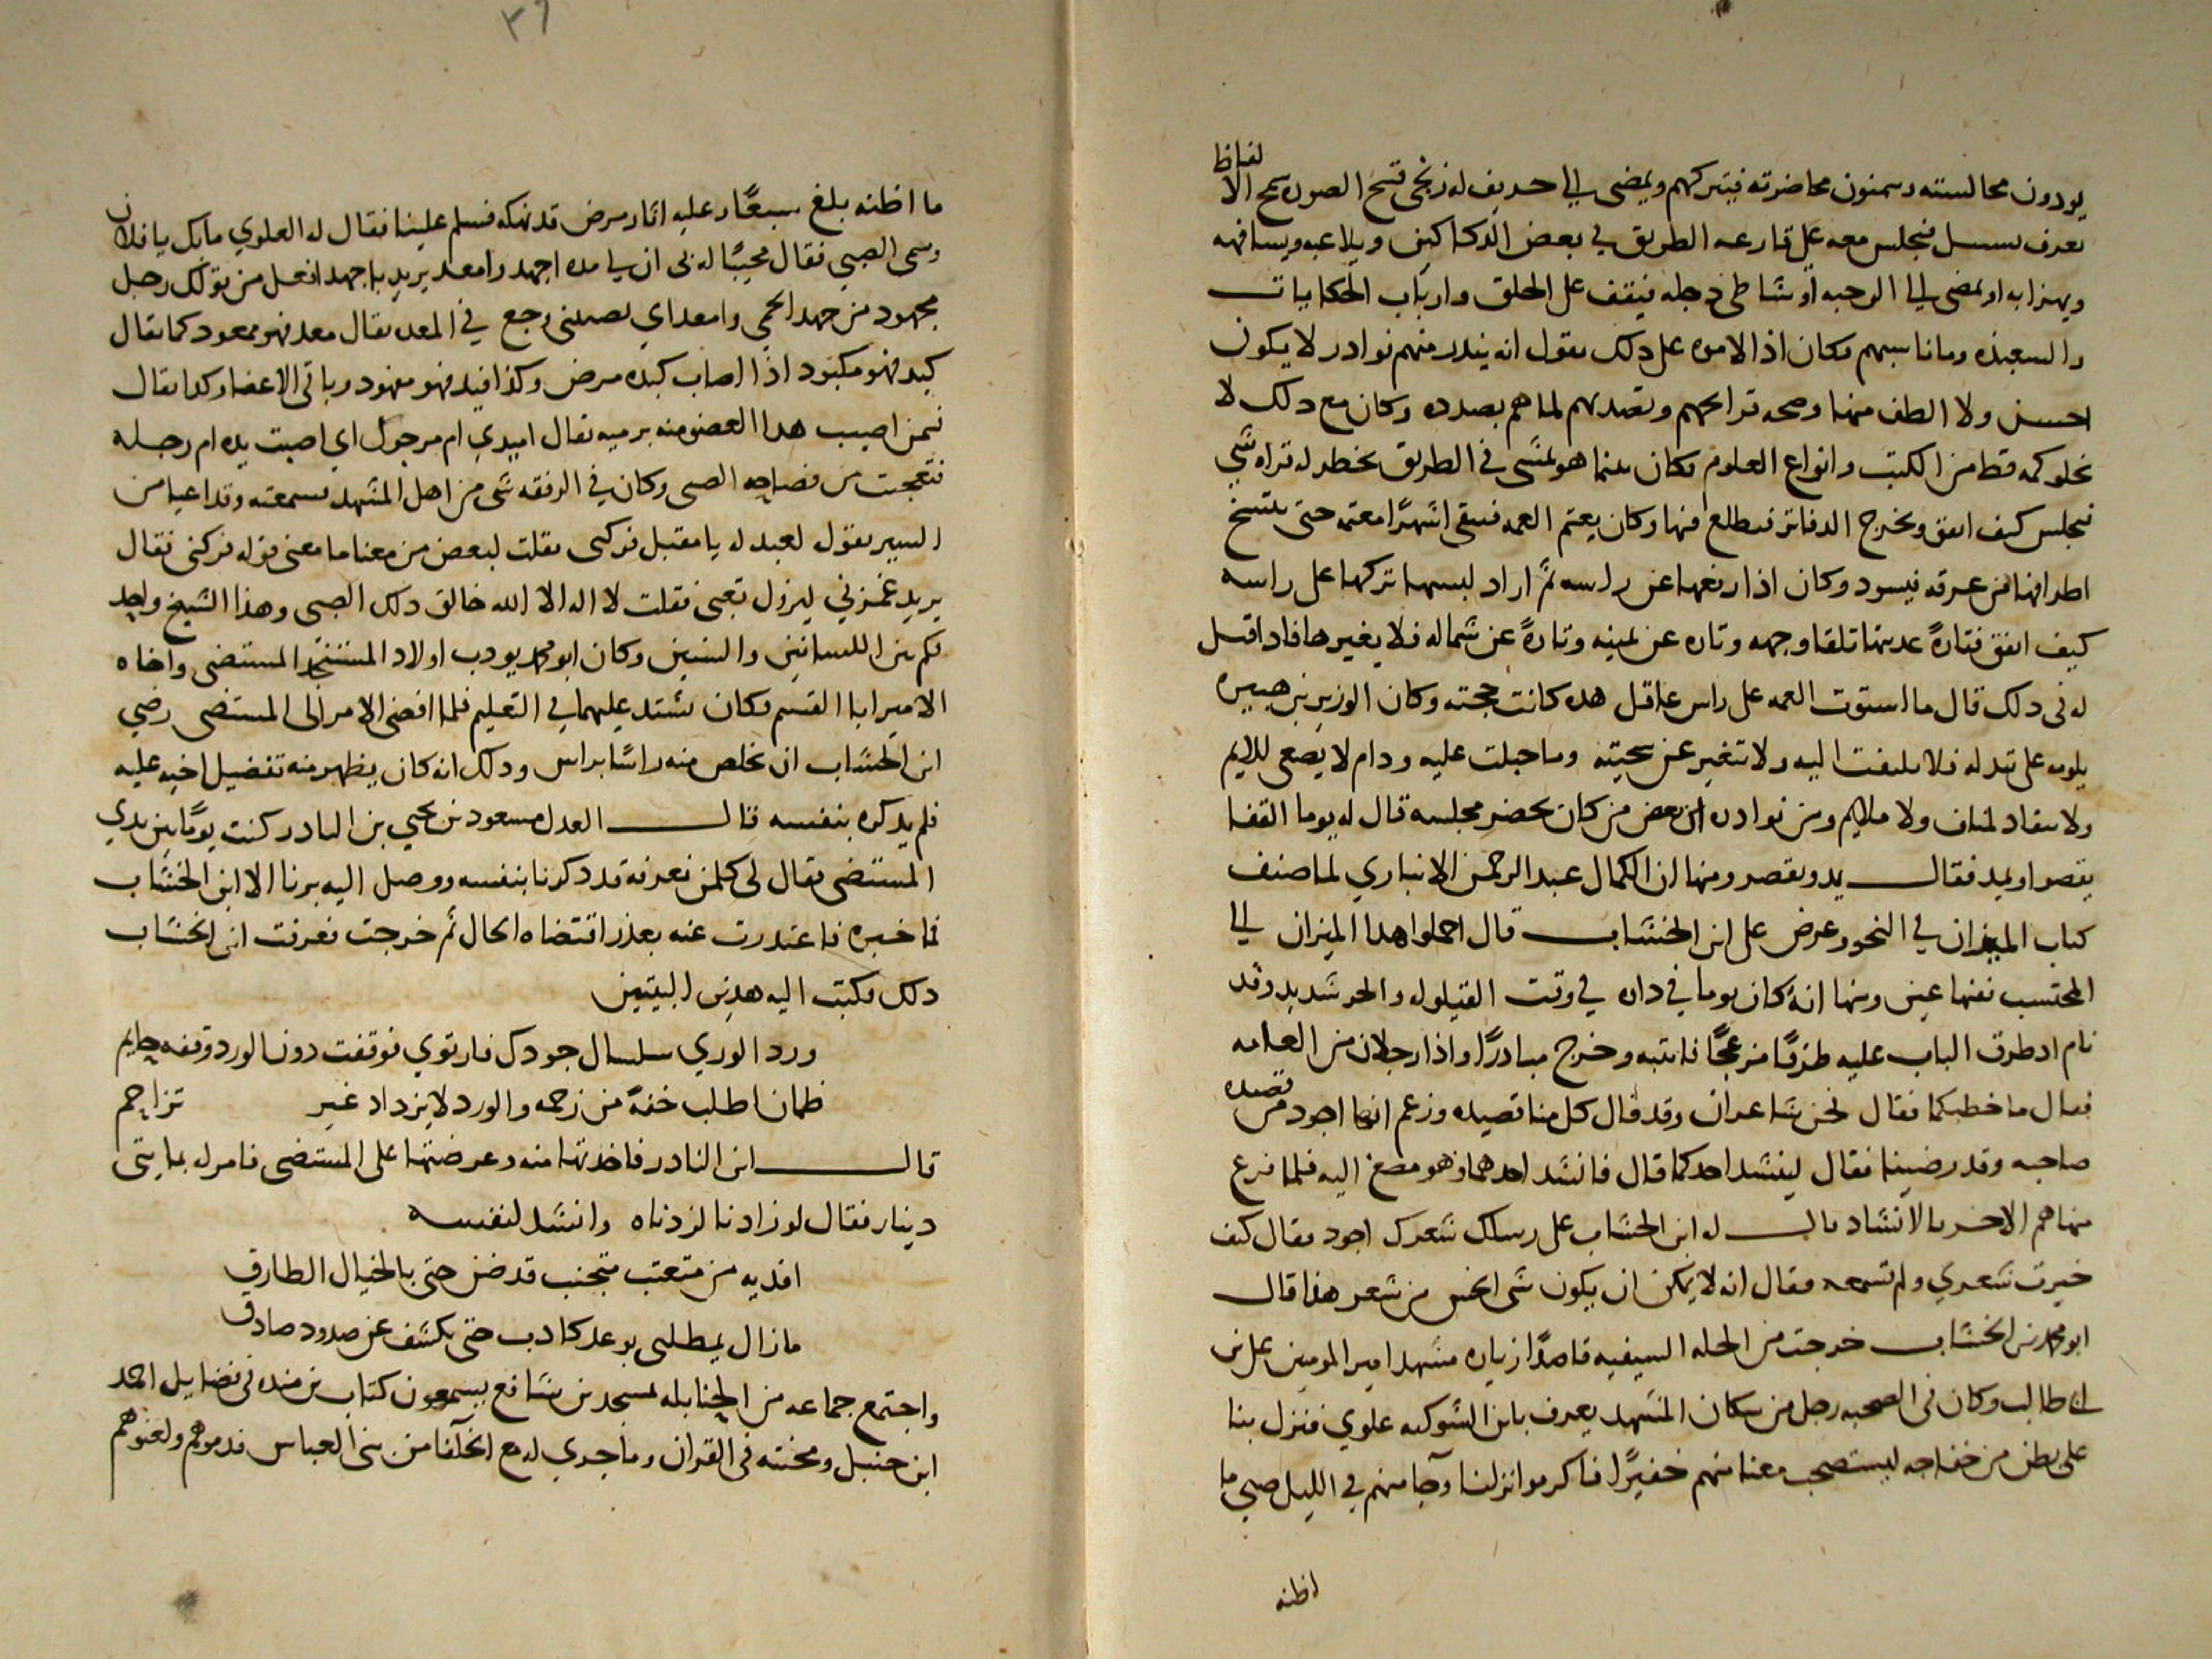 يودون مجالسته ويتمنون محاضرته فيتركهم ويمضي الى حريف له زنجي قبيح الصوره سمج الالفاظ
يعرف بسل فيجلس معه على قارعه الطريق في بعض الدكاكين ويلاعبه ويسافهه
ويهزا به او يمضي الى الرحبه او شاطى دجله فيقف على الحلق وارباب الحكايات
والشعبذه وما ناسبهم فكان اذا لاموه على ذلك يقول انه يندر منهم نوادر لا يكون
احسن ولا الطف منها وصحه قرايحهم وتصديهم لما هم بصدده وكان مع ذلك لا
يخلو كمه قط من الكتب وانواع العلوم فكان بينما هو يمشي في الطريق يخطر له قراه شي
فيجلس كيف اتفق ويخرج الدفاتر فيطالع فيها وكان يعتم العمه فتبقى اشهرا معتمه حتى تتسخ
اطرافها من عرقه فيسود وكان اذا رفعها عن راسه ثم اراد لبسها تركها على راسه
كيف اتفق فتارة عذبتها تلقا وجهه وتاره عن يمينه وتارة عن شماله فلا يغيرها فاذا قيل
له في ذلك قال ما استوت العمه على راس عاقل هذه كانت حجته وكان الوزير بن هبيره
يلومه على تبذله فلا يلتفت اليه ولا تتغير عن سجيته وما جبلت عليه ودام لا يصغى للايم
ولا ينقاد لمناف ولا ملايم ومن نوادره ان بعض من كان يحضر مجلسه قال له يوما القفا
يقصر او يمد فقال يمد ويقصر ومنها ان الكمال عبد الرحمن الانباري لما صنف
كتاب الميزان في النحو وعرض على ابن الخشاب قال احملوا هذا الميزان الى
المحتسب ففيها عين ومنها انه كان يوما في داره في وقت القيلوله والحر شديد وقد
نام اذ طرق الباب عليه طرقا مزعجا فانتبه وخرج مبادرا واذا رجلان من العامه
فقال ما خطبكما فقال نحن شاعران وقد قال كل منا قصيده وزعم انها اجود من قصيده
صاحبه وقد رضينا فقال لينشد احدكما قال فانشد احدهما وهو مصغ اليه فلما فرغ
منها هم الاخر بالانشاد قال له ابن الخشاب على رسلك شعرك اجود فقال كيف
خيرت شعري ولم تسمعه فقال انه لا يمكن ان يكون شي انحس من شعر هذا قال
ابو محمد بن الخشاب خرجت من الحله السيفيه قاصدا زياره مشهد امير المومنين على بن
ابي طالب وكان في الصحبه رجل من سكان المشهد يعرف بابن الشوكيه علوي فنزل بنا
على بطن من خفاجه ليستصحب معنا منهم خفيرا فاكرموا نزلنا وجا منهم في الليل صبي ما
اظنه
٣٩
ما اظنه بلغ سبعا وعليه اثار مرض قد نهكه فسلم علينا فقال له العلوي مالك يا فلان
وسمى الصبي فقال مجيبا له بي ان لي مده اجهد وامعد يريد باجهد افعل من قولك رجل
مجهود من جهد الحمى وامعد اي يصيبني وجع في المعده يقال معد فهو ممعود كما يقال
كبد فهو مكبود اذا اصاب كبده مرض وكذا فيد فهو مفود وباقي الاعضا وكذا يقال
فيمن اصيب هذا العضو منه برميه يقال اميدي ام مرجول اي اصبت يده ام رجله
فتعجبت من فصاحه الصبي وكان في الرفقه شي من اهل المشهد فسمعته وقد اعيا من
السير يقول لعبد له يا مقبل فركني فقلت لبعض من معنا ما معنى قوله فركني فقال
يريد غمزني ليزول تعبي فقلت لا اله الا الله خالق ذلك الصبي وهذا الشيخ واحد
فكم بين اللسانين والسنين وكان ابو محمد يودب اولاد المستنجد المستضي واخاه
الامير ابا القسم فكان يشتد عليهما في التعليم فلما افضى الامر الى المستضي رضي
ابن الخشاب ان يخلص منه راسا براس وذلك انه كان يظهر منه تفضيل اخيه عليه
فلم يذكره بنفسه قال العدل مسعود بن يحيي بن النادر كنت يوما بين يدي
المستضي فقال لي كلمن نعرفه قد ذكرنا بنفسه ووصل اليه برنا الا ابن الخشاب
فما خبره فاعتذرت عنه بعذر اقتضاه الحال ثم خرجت فعرفت ابن الخشاب
ذلك فكتب اليه هذين البيتين
ورد الوري سلسال جودك فارتوي فوقفت دون الورد وقفه حايم
ظمان اطلب خفة من زحمه والورد لا يزداد غير تزاحم
قال ابن النادر فاخذتها منه وعرضتها على المستضي فامر له بمايتى
دينار فقال لو زادنا لزدناه وانشد لنفسه
افديه من متعتب متجنب قد ضن حتى بالخيال الطارق
ما زال يمطلني بوعد كاذب حتى تكشف عن صدود صادق
واجتمع جماعه من الحنابله لمسجد بن شافع يسمعون كتاب بن منده في فضايل احمد
ابن حنبل ومحنته في القران وما جري له مع الخلفا من بني العباس فذموهم ولعنوهم